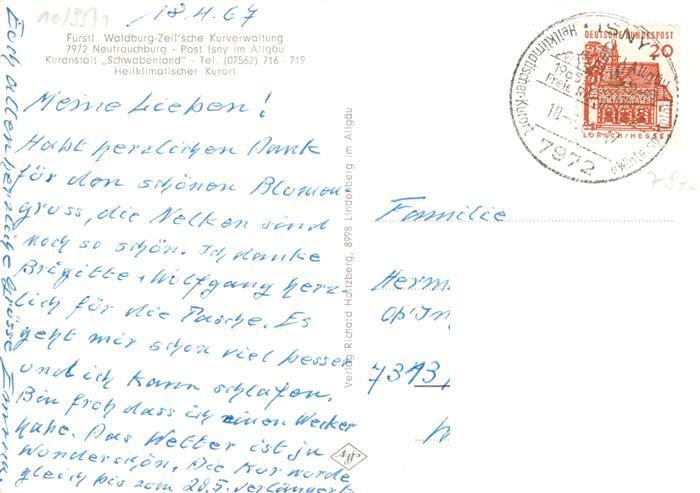 10/951
18.4.67
Fürstl. Waldburg-Zeil'sche Kurverwaltung
7972 Neutrauchburg - Post Isny im Allgäu
Kuranstalt „Schwabenland" - Tel. (07562) 716 - 719
Heilklimatischer Kurort
Meine Lieben!
Habt herzlichen Dank
für den schönen Blumen-
gruss, die Nelken sind
noch so schön. Ich danke
Brigitte + Wolfgang herz-
lich für die Tasche. Es
geht mir schon viel besser
und ich kann schlafen.
Bin froh dass ich einen Wecker
habe. Das Wetter ist ja
wunderschön. Die Kur wurde
gleich bis zum 20.5. verlängert
Euch allen herzliche Grüsse
Verlag Richard Holtzberg, 8998 Lindenberg im Allgäu
DEUTSCHE BUNDESPOST
20
LORSCH/HESSEN
ISNY
Heilklimatischer-Kurort
7972
Familie
Herm
Ob'In
7313